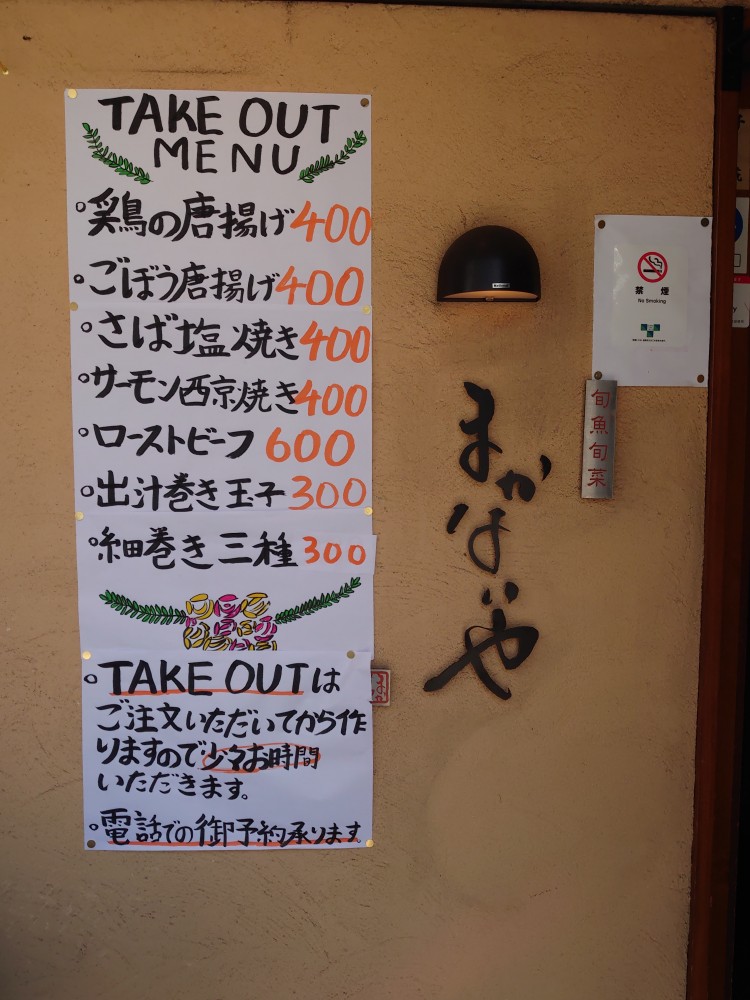 TAKE OUT
MENU
。鶏の唐揚げ400
。ごぼう唐揚げ400
。さば塩焼き400
。サーモン西京焼き400
。ローストビーフ 600
。出汁巻き玉子300
。細巻き三種 300
。TAKE OUTは
ご注文いただいてから作
りますので少々お時間
いただきます。
。電話での御予約承ります。
まかないや
禁煙
No Smoking
旬魚旬菜